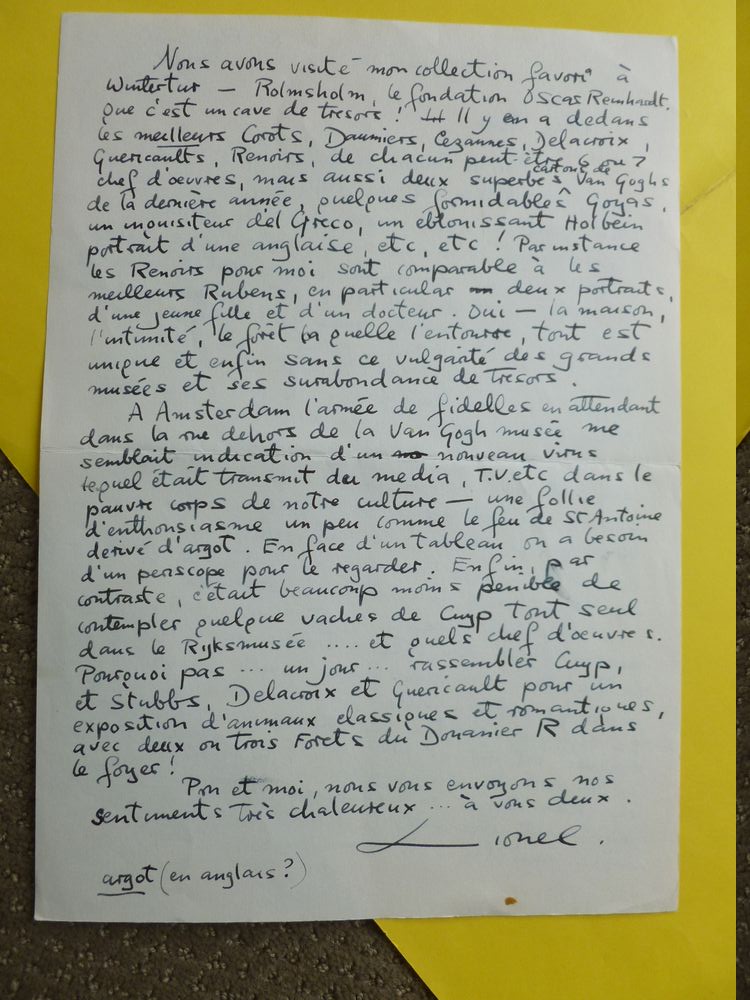 Nous avons visité mon collection favori à
Wintertur — Rolmsholm, le fondation Oscas Reinhardt.
que c'est un cave de tresors ! Il y en a dedans
les meilleurs Corots, Daumiers, Cezannes, Delacroix,
Guericaults, Renoirs, de chacun peut-être 6 ou 7
chef d'oeuvres, mais aussi deux superbes cartons de Van Goghs
de la dernière année, quelques formidables Goyas,
un inquisiteur del Greco, un eblouissant Holbein
portrait d'une anglaise, etc, etc ! Par instance
les Renoirs pour moi sont comparable à les
meilleurs Rubens, en particular deux portraits,
d'une jeune fille et d'un docteur. Oui — la maison,
l'intimité, le forêt la quelle l'entourre, tout est
unique et enfin sans ce vulgarité des grands
musées et ses surabondance de tresors.
A Amsterdam l'armée de fidelles en attendant
dans la rue dehors de la Van Gogh musée me
semblait indication d'un nouveau virus
lequel était transmit du media, T.V. etc dans le
pauvre corps de notre culture — une follie
d'enthousiasme un peu comme le feu de St Antoine
derivé d'argot. En face d'un tableau on a besoin
d'un periscope pour le regarder. Enfin, par
contraste, c'était beaucoup moins penible de
contempler quelque vaches de Cuyp tout seul
dans le Rijksmusée .... et quels chef d'oeuvres.
Pourquoi pas ... un jour ... rassembler Cuyp,
et Stubbs, Delacroix et Guericault pour un
exposition d'animaux classiques et romantiques,
avec deux ou trois Forets du Douanier R dans
le foyer !
Pin et moi, nous vous envoyons nos
sentiments très chaleureux ... à vous deux.
Lionel.
argot (en anglais ?)